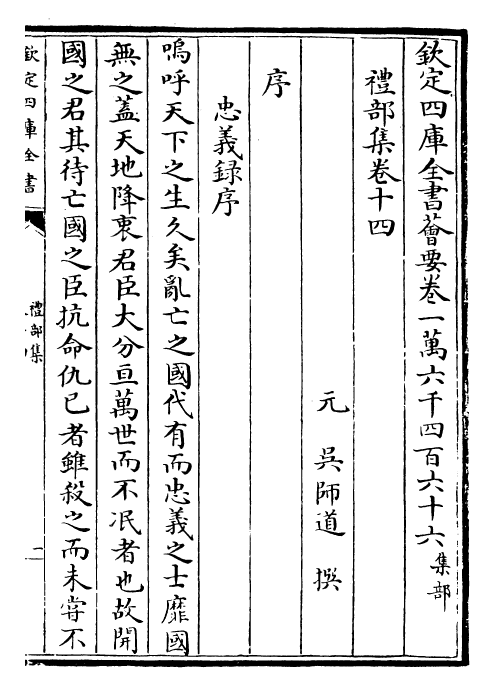 欽定四庫全書薈要卷一萬六千四百六十六集部
禮部集卷十四
元 吳師道 撰
序
忠義録序
嗚呼天下之生久矣亂亡之國代有而忠義之士靡國
無之蓋天地降衷君臣大分亘萬世而不冺者也故開
國之君其待亡國之臣抗命仇已者雖殺之而未甞不
欽定四庫全書
禮部集